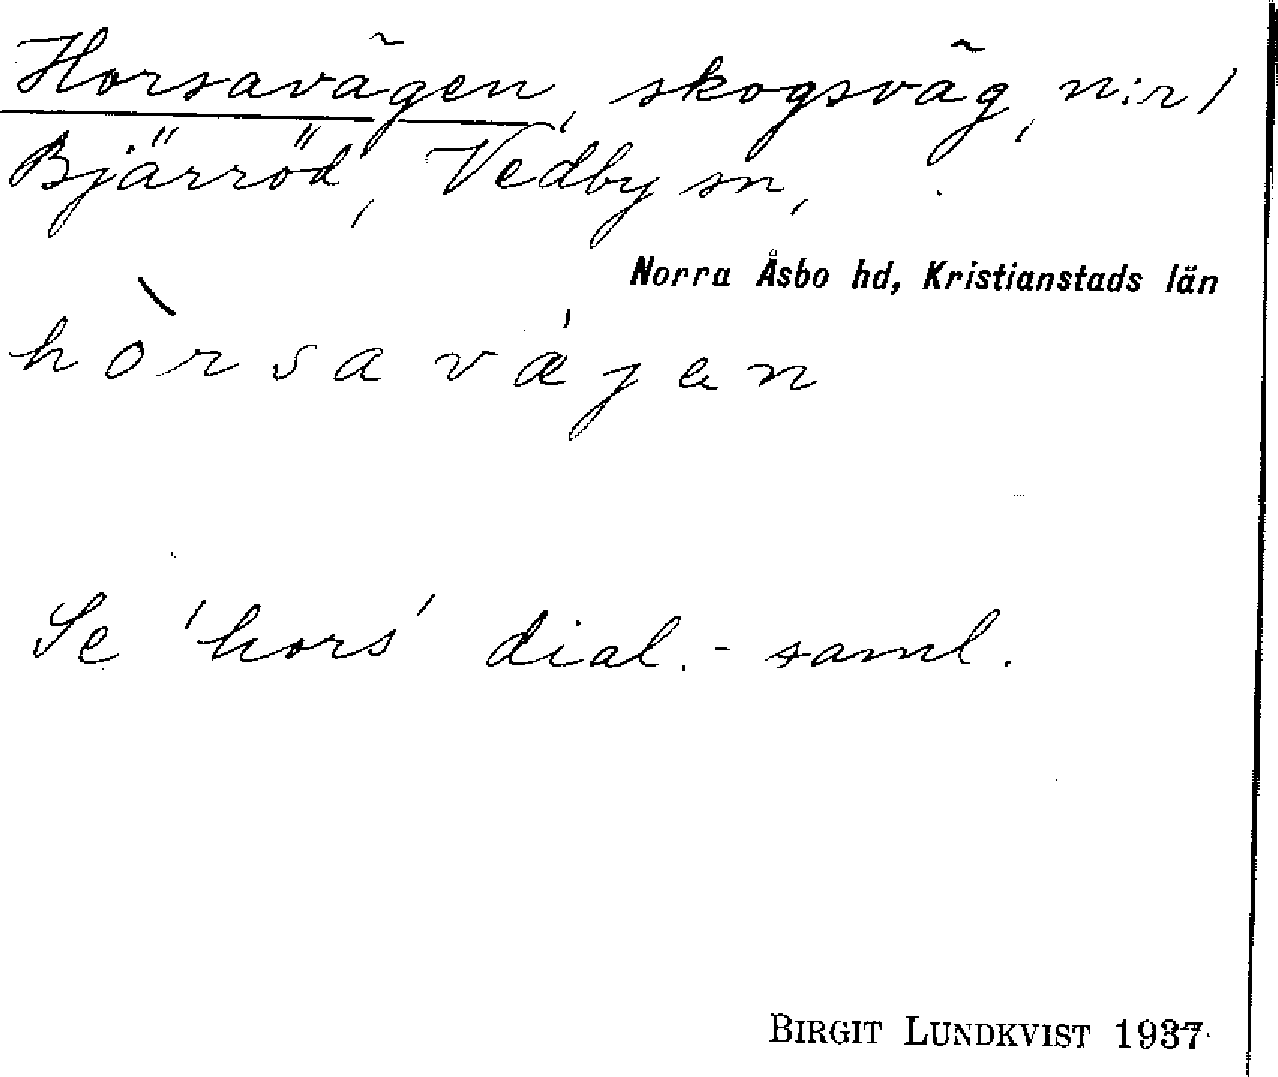 Horsavägen, skogsväg, n:r 1
Bjärröd, Vedby sn,
Norra Åsbo hd, Kristianstads län
hòrsavǽjen
Se 'hors' dial.-saml.
BIRGIT LUNDKVIST 1937